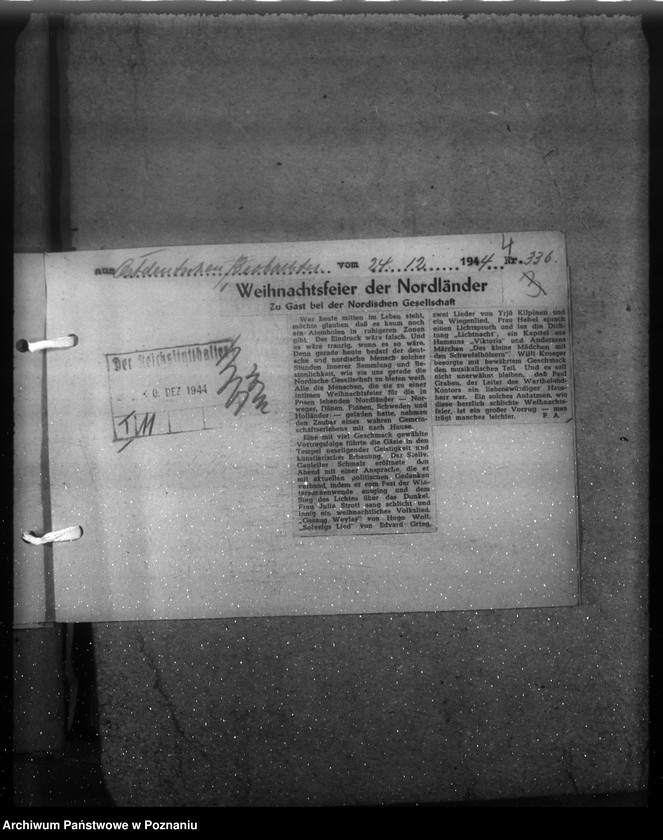 aus Ostdeutschen Beobachter vom 24.12. 1944 Nr. 336.
4
3
Weihnachtsfeier der Nordländer
Zu Gast bei der Nordischen Gesellschaft
Der Reichsstatthalter
DEZ 1944
Wer heute mitten im Leben steht,
möchte glauben, daß es kaum noch
ein Atemholen in ruhigeren Zonen
gibt. Der Eindruck wäre falsch. Und
es wäre traurig, wenn es so wäre.
Denn gerade heute bedarf der deut-
sche und nordische Mensch solcher
Stunden innerer Sammlung und Be-
sinnlichkeit, wie sie uns gerade die
Nordische Gesellschaft zu bieten weiß.
Alle die Menschen, die sie zu einer
intimen Weihnachtsfeier für die in
Posen lebenden Nordländer — Nor-
weger, Dänen, Finnen, Schweden und
Holländer — geladen hatte, nahmen
den Zauber eines wahren Gemein-
schaftserlebens mit nach Hause.
Eine mit viel Geschmack gewählte
Vortragsfolge führte die Gäste in den
Tempel neseligender Geistigkeit und
künstlerischer Erbauung. Der Stellv.
Gauleiter Schmalz eröffnete den
Abend mit einer Ansprache, die er
mit aktuellen politischen Gedanken
verband, indem er vom Fest der Win-
tersonnenwende ausging und dem
Sieg des Lichtes über das Dunkel.
Frau Julia Strott sang schlicht und
innig ein weihnachtliches Volkslied,
„Gesang Weylas" von Hugo Wolf,
„Solveigs Lied" von Edvard Grieg,
zwei Lieder von Yrjö Kilpinen und
ein Wiegenlied. Frau Hebel sprach
einen Lichtspruch und las die Dich-
tung „Lichtnacht", ein Kapitel aus
Hamsuns „Viktoria" und Andersens
Märchen „Das kleine Mädchen mit
den Schwefelhölzern". Willi Kroeger
besorgte mit bewährtem Geschmack
den musikalischen Teil. Und es soll
nicht unerwähnt bleiben, daß Paul
Graben, der Leiter des Warthéland-
Kontors ein liebenswürdiger Haus-
herr war. Ein solches Aufatmen, wie
diese herzlich schlichte Weihnachts-
feier, ist ein großer Vorzug — man
trägt manches leichter. P. A.
Archiwum Państwowe w Poznaniu